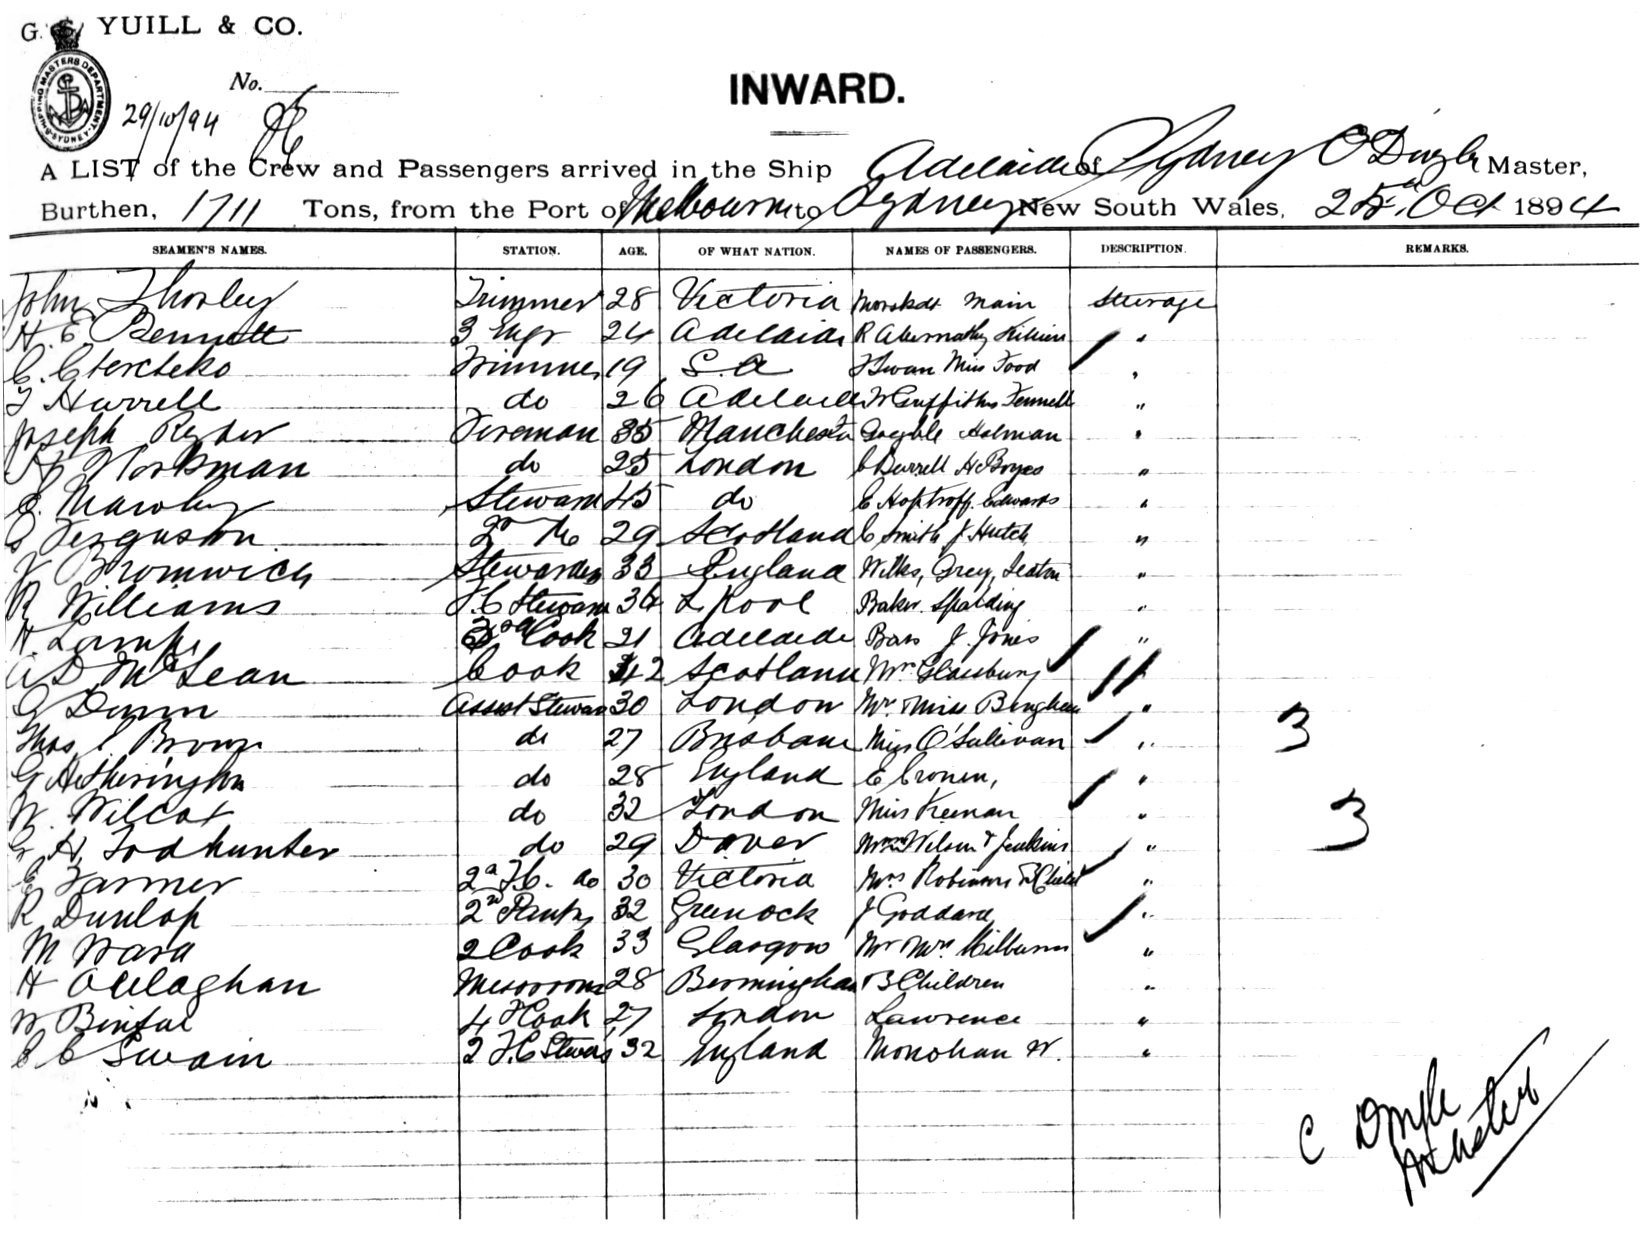 G. S. YUILL & CO.
SHIPPING MASTERS DEPARTMENT SYDNEY
No.
29/10/94
INWARD.
A LIST of the Crew and Passengers arrived in the Ship Adelaide of Sydney C Dingle Master,
Burthen, 1711 Tons, from the Port of Melbourne to Sydney New South Wales, 25th Oct 1894
SEAMEN'S NAMES. STATION. AGE. OF WHAT NATION. NAMES OF PASSENGERS. DESCRIPTION. REMARKS.
John Thorley Trimmer 28 Victoria Main Steerage
H. E. Bennett 3 Engr 24 Adelaide R Abernathy "
C. Trimmer 19 S. A Swan Miss Food "
T Hurrell do 26 Adelaide Griffiths Fennell "
Joseph Ryder Fireman 35 Manchester Holman "
H Workman do 25 London C Burrell H Boyes "
Mawley Steward 45 do E Hoptroff. Edwards "
Ferguson 2nd do 29 Scotland C Smith J Hutch "
Bromwich Stewardess 33 England Wilks, Grey, Seaton "
R Williams F. C Steward 34 L pool Baker. Spalding "
H. Lampe 3rd Cook 21 Adelaide Bass J. Jones "
A D McLean Cook 42 Scotland Mrs "
G Dunn Assist Steward 30 London Mr. Miss Bingham "
Thos Brown do 27 Brisbane Miss O'Sullivan " 3
G Hetherington do 28 England E Cronin, "
W. Wilcox do 32 London Miss Keenan " 3
G H Todhunter do 29 Dover Wilson & Jenkins "
C Farmer 2nd F.C. do 30 Victoria Mrs Robinson & Child "
R Dunlop 2nd Pantry 32 Greenock J Goddard "
M Ward 2 Cook 33 Glasgow Mr Mrs Milburn "
H OCllaghan Messroom 28 Birmingham 3 Children "
W 4 Cook 27 London Lawrence "
C C Swain 2 F.C Steward 32 England Monohan W. "
C Dingle
Master